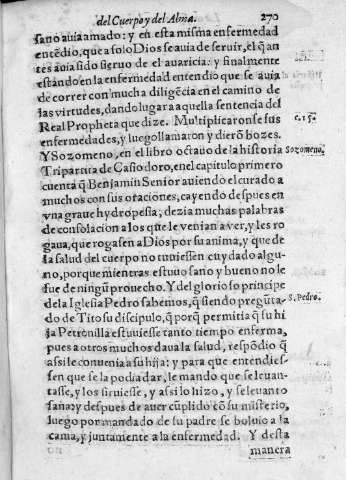 del Cuerpo y del Alma. 270
sano auia amado: y en esta misma enfermedad
entẽdio, que a solo Dios se auia de seruir, el q̃ an
tes auia sido sieruo de el auaricia: y finalmente
estãdo en la enfermedad entendio que se auia
de correr con mucha diligẽcia en el camino de
las virtudes, dando lugar a aquella sentencia del
Real Propheta que dize. Multiplicaronse sus
c. 15.
enfermedades, y luego llamaron y dierõ bozes.
Y Sozomeno, en el libro octauo de la historia
Sozomeno.
Tripartita de Casiodoro, en el capitulo primero
cuenta q̃ Benjamin Senior auiendo el curado a
muchos con sus oraciones, cayendo despues en
vna graue hydropesia; dezia muchas palabras
de consolacion a los que le venian a ver, y les ro
gaua, que rogasen a Dios por su anima, y que de
la salud del cuerpo no tuuiessen cuydado algu-
no, porque mientras estuuo sano y bueno no le
fue de ningũ prouecho. Y del glorioso principe
de la Iglesia Pedro sabemos, q̃ siendo pregũta-
S. Pedro.
do de Tito su discipulo, q̃ porq̃ permitia q̃ su hi
ja Petronilla estuuiesse tanto tiempo enferma,
pues a otros muchos daua la salud, respõdio q̃
assi le conuenia a su hija: y para que entendies-
sen que se la podia dar, le mando que se leuan-
tasse, y los siruiesse, y assi lo hizo, y se leuanto
sana: y despues de auer cũplido cõ su misterio,
luego por mandado de su padre se boluio a la
cama, y juntamente a la enfermedad. Y desta
manera